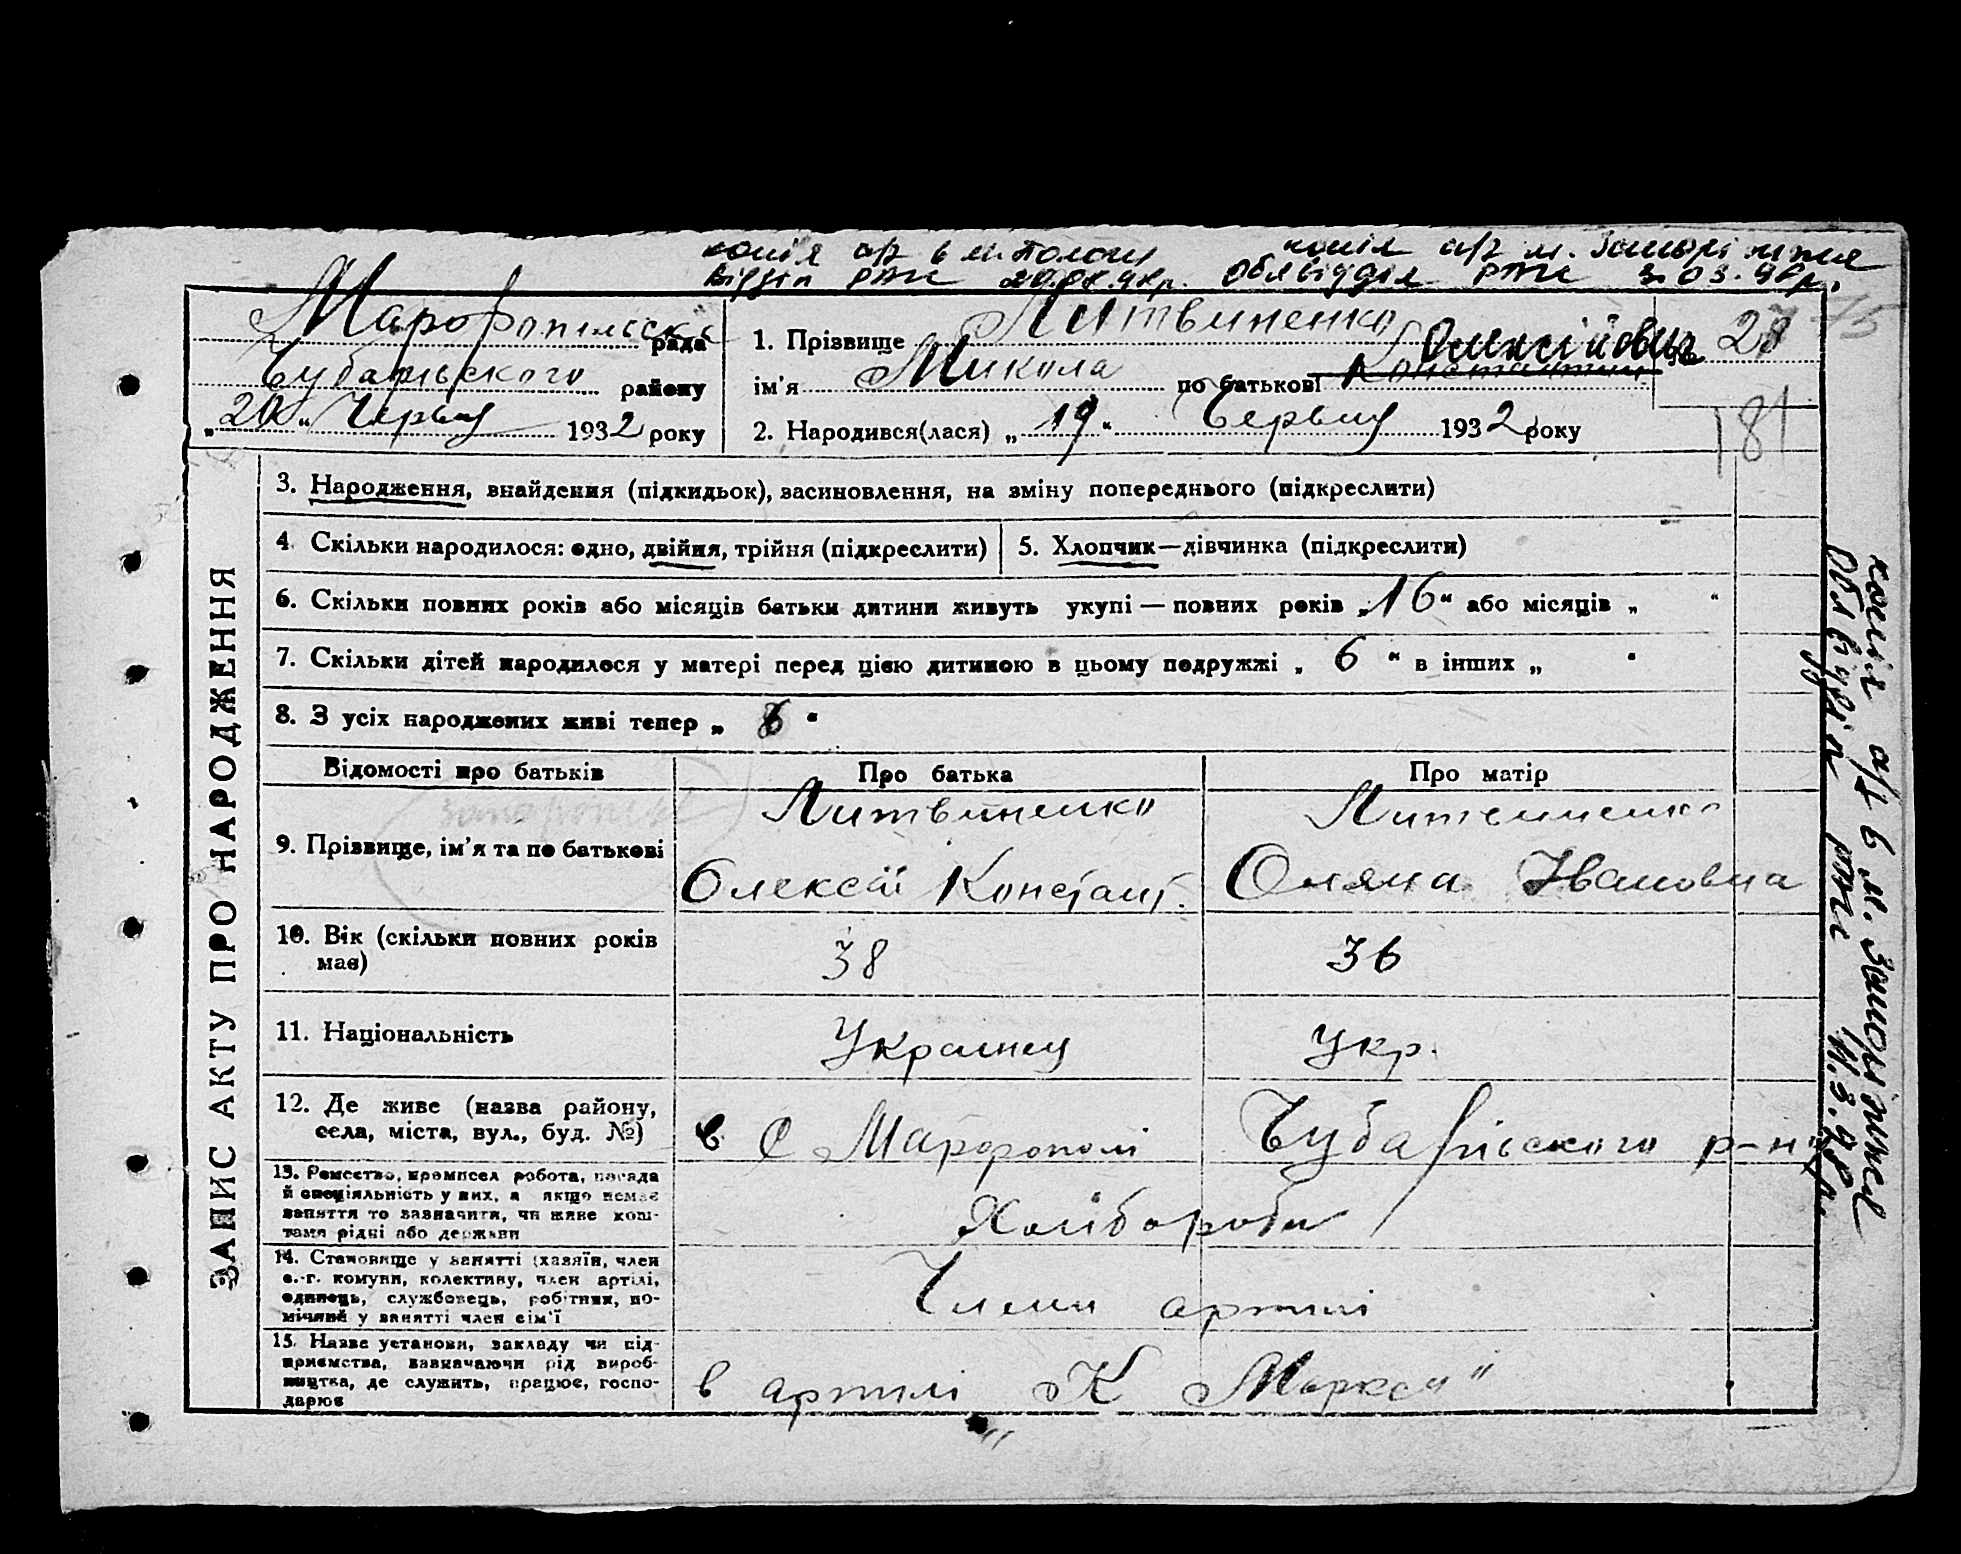 копія а/з в м. Пологи копія а/з м. Запоріжжя
відділ РАГС 20.01.98р. Облвідділ РАГС 3.03.98р.
Марфопільська рада
Чубарівського району
„20“ Червня 1932 року
1. Прізвище Литвиненко
ім'я Микола по батькові Константин Олексійович
2. Народився(лася) „19“ Червня 1932 року
28
181
ЗАПИС АКТУ ПРО НАРОДЖЕННЯ
3. Народження, знайдення (підкидьок), засиновлення, на зміну попереднього (підкреслити)
4. Скільки народилося: одно, двійня, трійня (підкреслити)
5. Хлопчик—дівчинка (підкреслити)
6. Скільки повних років або місяців батьки дитини живуть укупі — повних років „16“ або місяців „ “
7. Скільки дітей народилося у матері перед цією дитиною в цьому подружжі „ 6 “ в інших „ “
8. З усіх народжених живі тепер „ “
Відомості про батьків Про батька Про матір
9. Прізвище, ім'я та по батькові
Литвиненко Литвиненко
Олексій Констант. Оляна Івановна
10. Вік (скільки повних років має)
38 36
11. Національність
Украинец Укр.
12. Де живе (назва району,
села, міста, вул., буд. №)
в с Марфополі Чубарівського р-ну
13. Ремество, промисел робота, посада
й спеціяльність у них, а якщо немає
заняття то зазначити, чи живе кош-
тами рідні або держави
Хлібороби
14. Становище у занятті (хазяїн, член
с.-г. комуни, колективу, член артілі,
одинець, службовець, робітник, по-
мічний у занятті член сім'ї
Члени артілі
15. Назва установи, закладу чи під-
приємства, зазначаючи рід вироб-
ництва, де служить, працює, госпо-
дарює
в артилі „К Маркса"
копія а/з в м. Запоріжжя
Облвідділ РАГС 11.3.98р.